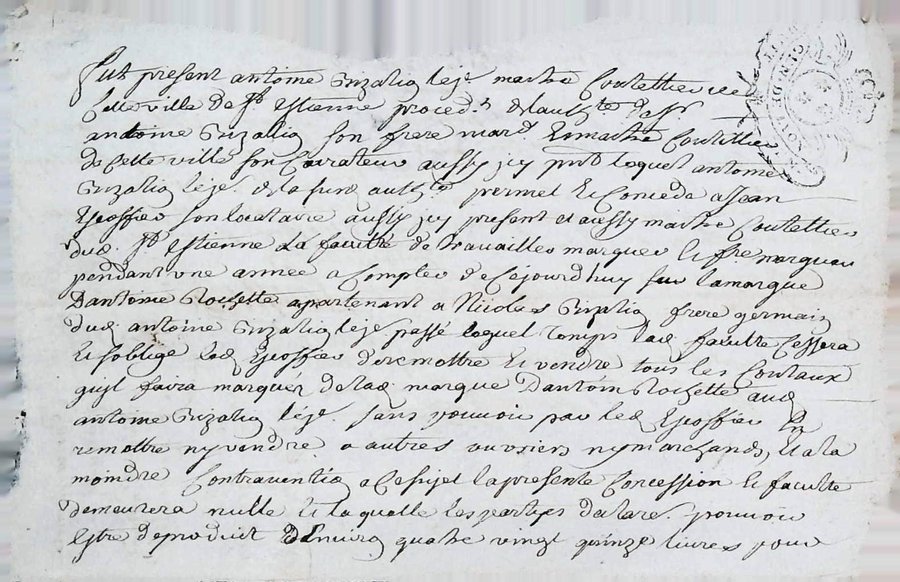 fut present antoine Guzalig leje. maitre Coutellier de
Cette ville de St. Estienne proced.t de
antoine Guzalig son frere mard. et maitre Coutellier
de Cette ville son Curateur aussy icy pnt. lequel antoine
Guzalig leje. de la susd. permet et Concede a Jean
Geoffier son locataire aussy icy present et aussy maitre Coutellier
dud. St. Estienne La faculté de travailler marquer et fre marquer
pendant une année a Compter de Cejourd'huy sur la marque
D'antoine Rozette apartenant a Nicolas Guzalig frere germain
Dud. antoine Guzalig leje. passé lequel temps lad. faculté Cessera
Et soblige led. Geoffier de remettre et vendre tous les Coutaux
quil faira marquer de lad. marque D'antoine Rozette aud.
antoine Guzalig leje. sans pouvoir par led. Geoffier en
remettre ny vendre a autres ouvriers ny marchands, Et a la
moindre Contraventio a Cesujet la presente Concession et faculté
demeurera nulle Et laquelle les partyes declare. pouvoir
Estre de produit Denviro quatre vingt quinze livres pour